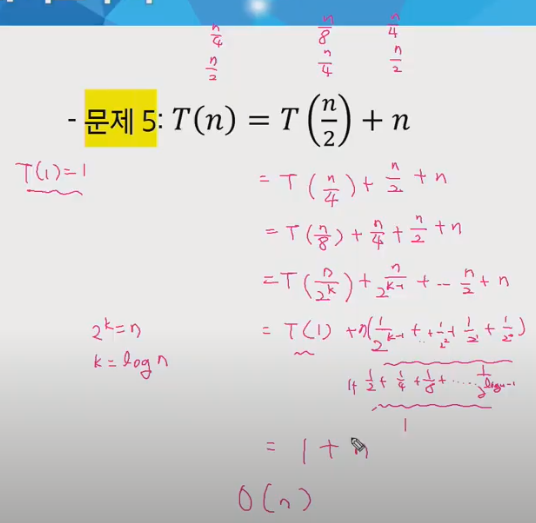 n/4 n/8 n/4
n/2 n/4 n/2
- 문제 5: T(n) = T(n/2) + n
T(1)=1
= T(n/4) + n/2 + n
= T(n/8) + n/4 + n/2 + n
= T(n/2^k) + n/2^(k-1) + -- n/2 + n
2^k = n
= T(1) + n(1/2^(k-1) + .. + 1/2^2 + 1/2^1 + 1/2^0)
k = log n
1+ 1/2 + 1/4 + 1/8 + ..... 1/2^(log n-1)
1
= 1 + n
O(n)